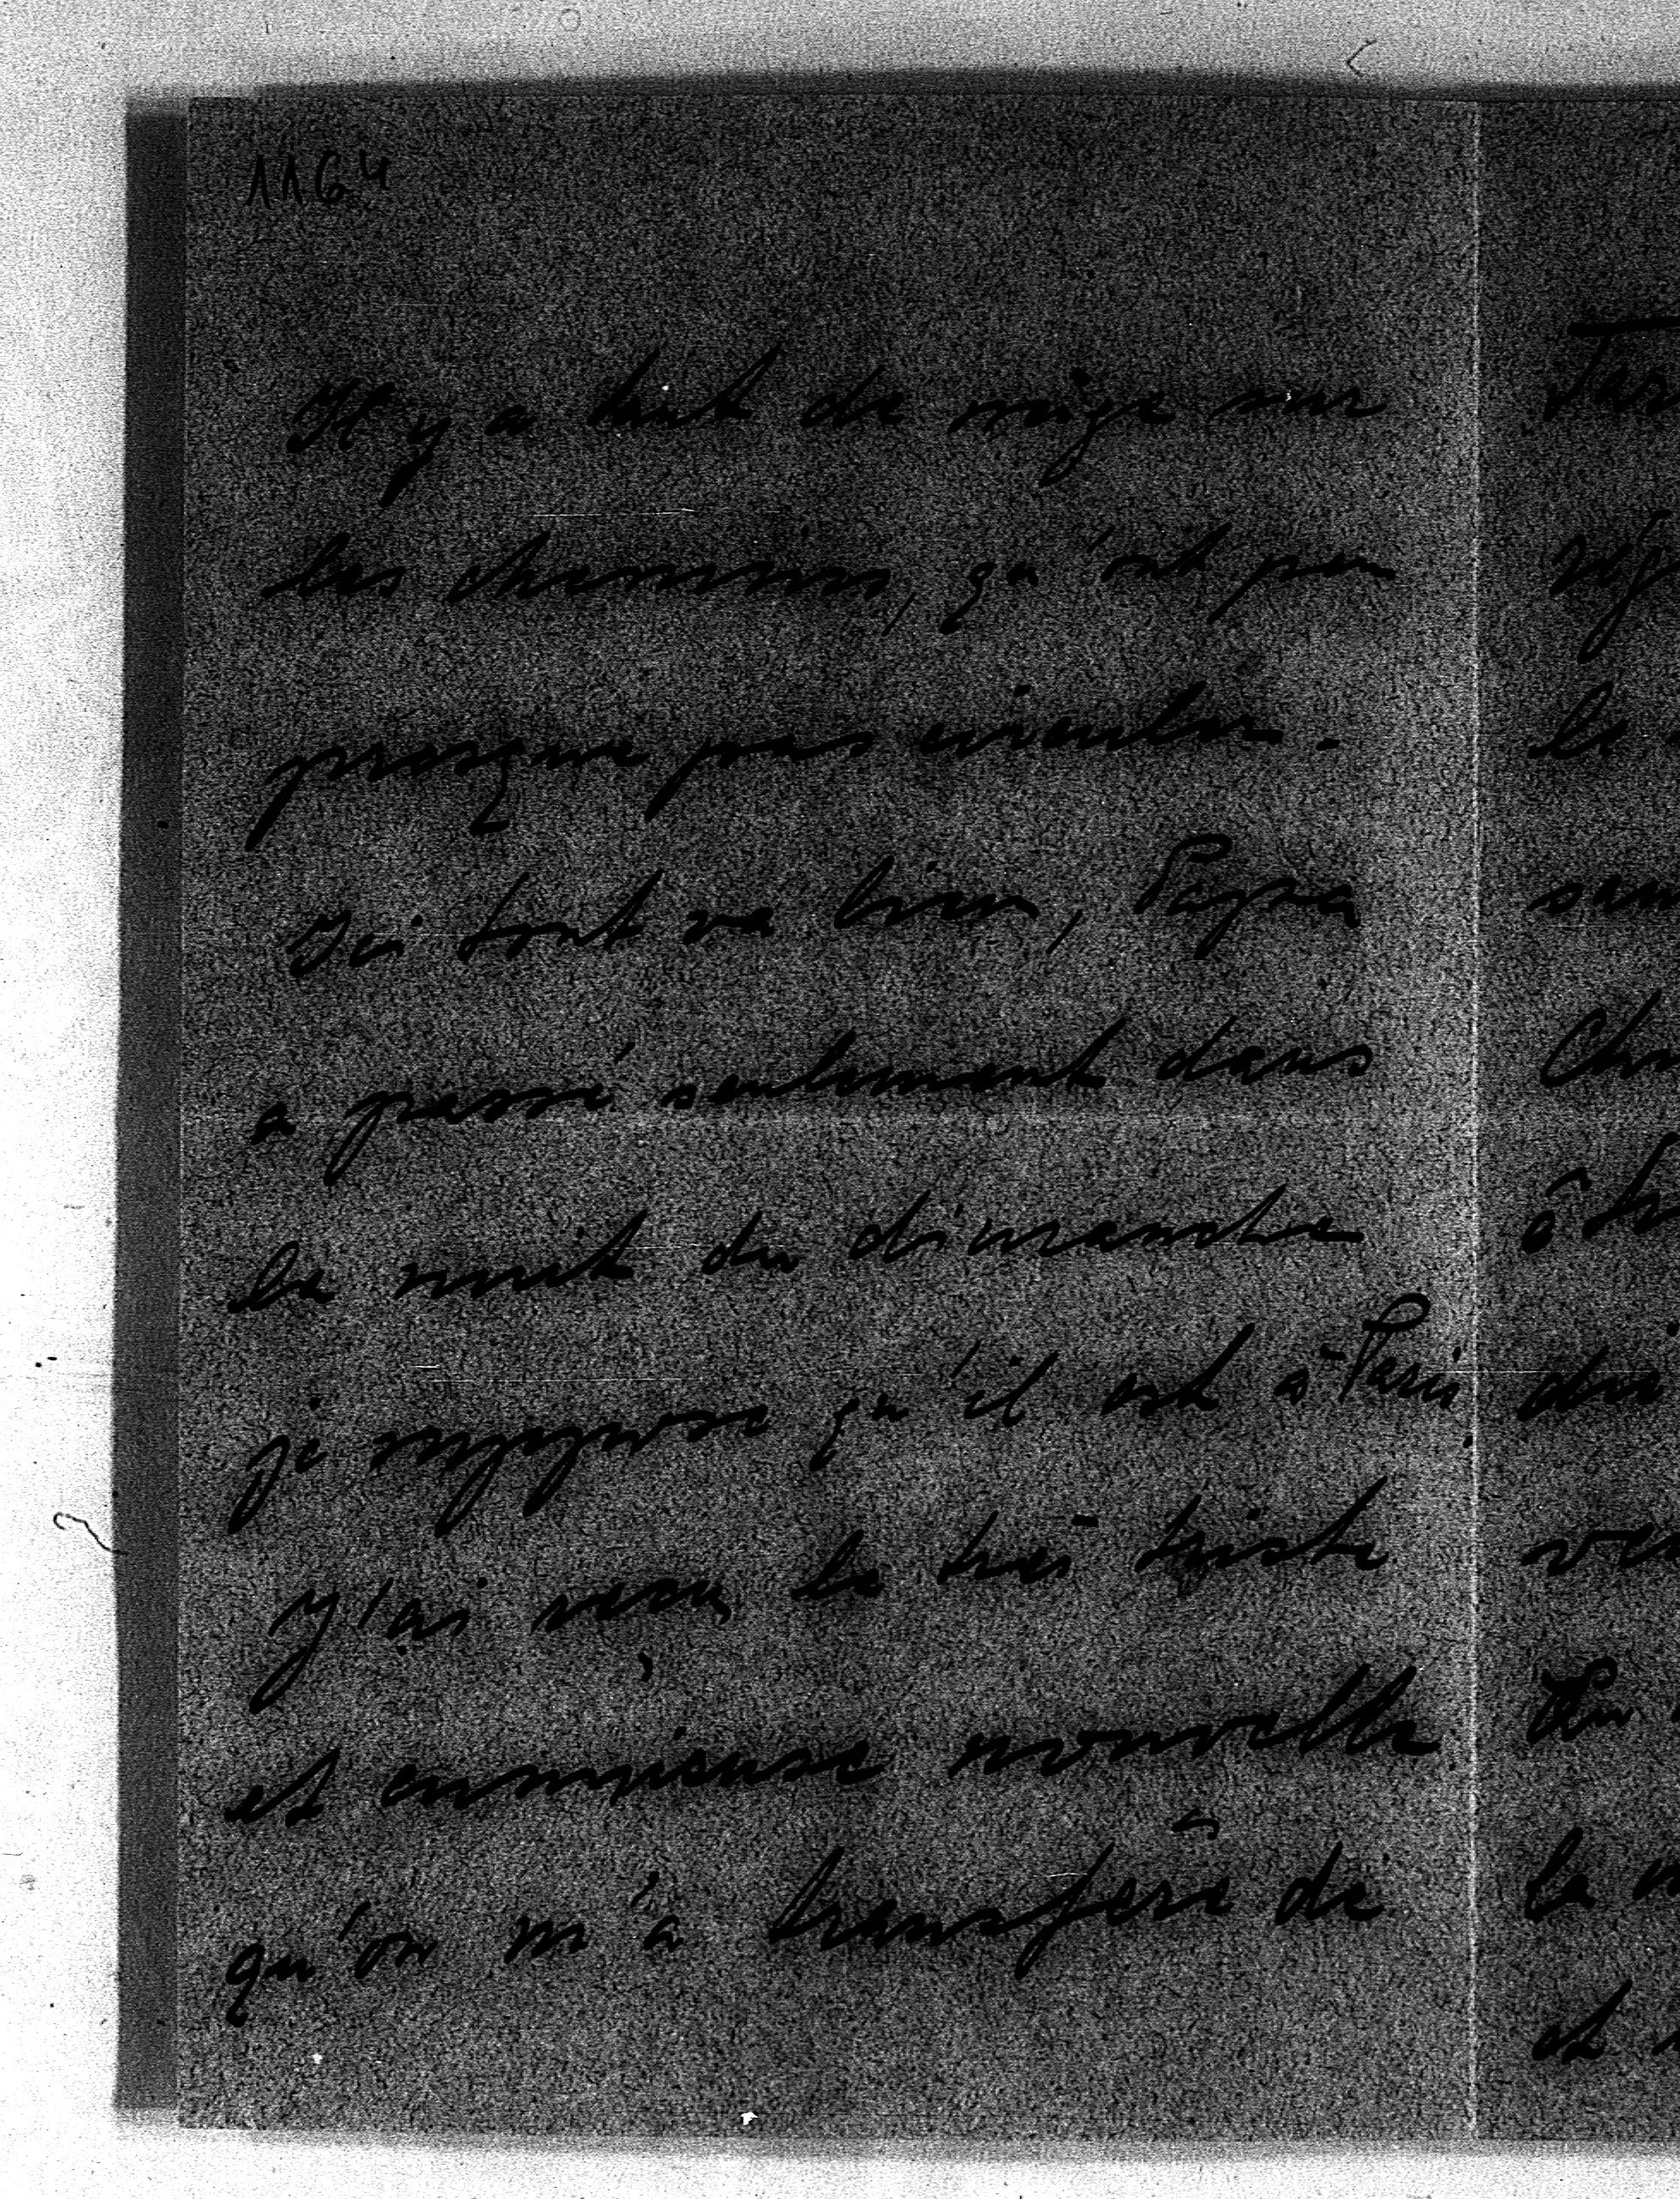 1164
Il y a tant de neige sur
les chemins, qu'ont peu
presque pas circuler.
Ici tout va bien, Papa
a passé seulement dans
la nuit du dimanche
je suppose qu'il est à Paris.
J'ai reçu la très triste
et ennuieuse nouvelle
qu'on m'a transferé de